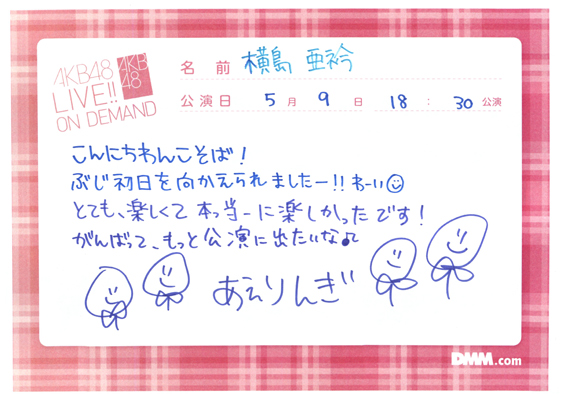 AKB48
LIVE!!
ON DEMAND
AKB
48
名 前 横島 亜衿
公演日 5 月 9 日 18 : 30 公演
こんにちわんこそば!
ぶじ初日を向かえられましたー!!わーい
とても、楽しくて本当ーに楽しかったです!
がんばって、もっと公演に出たいな♪
あえりんぎ
DMM.com